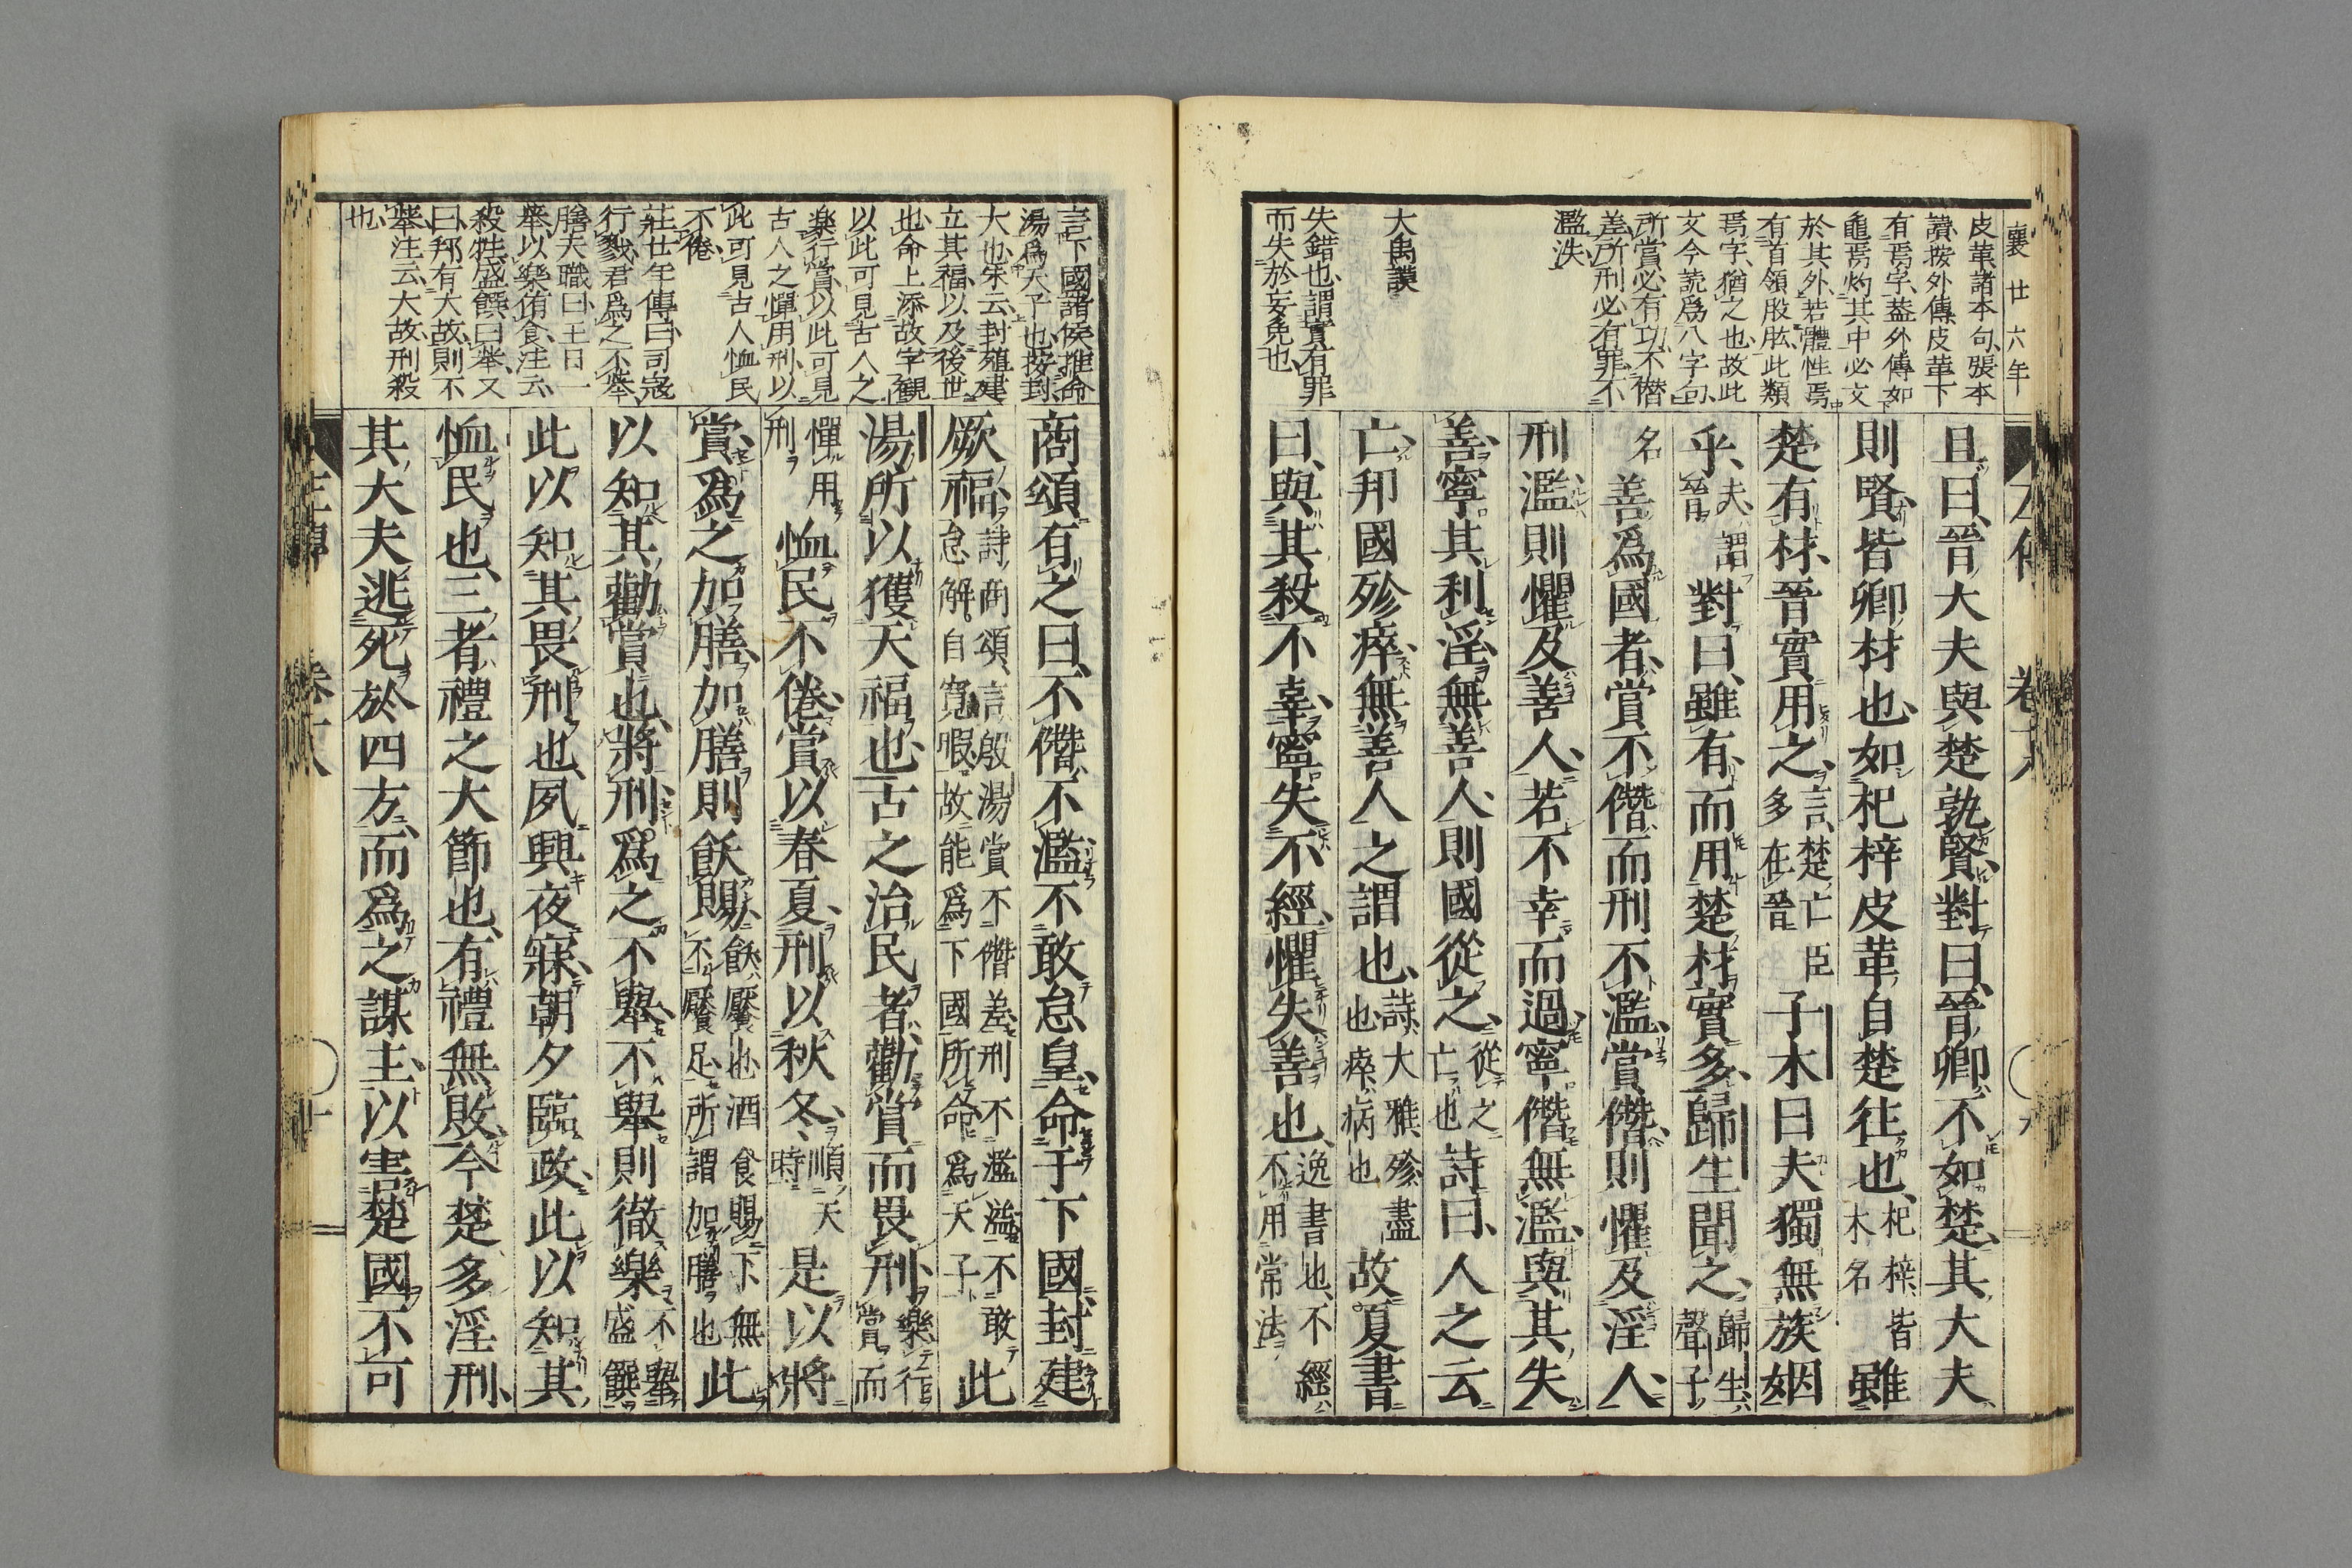 襄廿六年
皮革諸本句張本
讀按外傳皮革下
有焉字蓋外傳如
龜焉灼其中必文
於其外若體性焉
有首領股肱此類
焉字猶之也故此
文今読爲八字句
所賞必有功不僭
差所刑必有罪不
濫泆
大禹謨
失錯也謂實有罪
而失於妄免也
且曰晉大夫與楚孰賢對曰晉卿不如楚其大夫
則賢皆卿材也如杞梓皮革自楚往也杞梓皆木名雖
楚有材晉實用之言楚亡臣多在晉子木曰夫獨無族姻
乎夫謂晉對曰雖有而用楚材實多歸生聞之歸生聲子
名善爲國者賞不僭而刑不濫賞僭則懼及淫人
刑濫則懼及善人若不幸而過寧僭無濫與其失
善寧其利淫無善人則國從之從之亡也詩曰人之云
亡邦國殄瘁無善人之謂也詩大雅殄盡也瘁病也故夏書
曰與其殺不辜寧失不經懼失善也逸書也不經不用常法
言下國諸侯推命
湯爲天子也按封
大也朱云封殖建
立其福以及後世
也命上添故字觀
以此可見古人之
楽行賞以此可見
古人之憚用刑以
此可見古人恤民
不倦
莊廿年傳曰司寇
行戮君爲之不舉
膳夫職曰王日一
舉以樂侑食注云
殺牲盛饌曰舉又
曰邦有大故則不
舉注云大故刑殺
也
商頌有之曰不僭不濫不敢怠皇命于下國封建
厥福詩商頌言殷湯賞不僭差刑不濫溢不敢怠解自寬暇故能爲下國所命爲天子此
湯所以獲天福也古之治民者勸賞而畏刑樂行賞而
憚用刑恤民不倦賞以春夏刑以秋冬順天時是以將
賞爲之加膳加膳則飫賜飫饜也酒食賜下無不饜足所謂加膳也此
以知其勸賞也將刑爲之不舉不舉則徹樂不舉盛饌
此以知其畏刑也夙興夜寐朝夕臨政此以知其
恤民也三者禮之大節也有禮無敗今楚多淫刑
其大夫逃死於四方而爲之謀主以害楚國不可